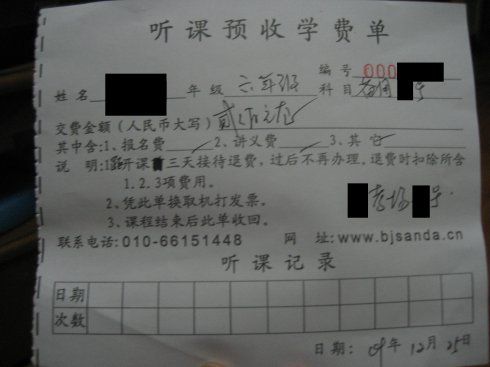 听课预收学费单
编号 000
姓名 年级 六年级 科目 号
交费金额（人民币大写） 贰佰元
其中含:1、报名费 2、讲义费 3、其它
说 明:1、开课 三天接待退费，过后不再办理。退费时扣除所含
1.2.3项费用。
2、凭此单换取机打发票。
3、课程结束后此单收回。
考场 号
联系电话:010-66151448 网 址:www.bjsanda.cn
听课记录
日期
次数
日期: 09年12月25日